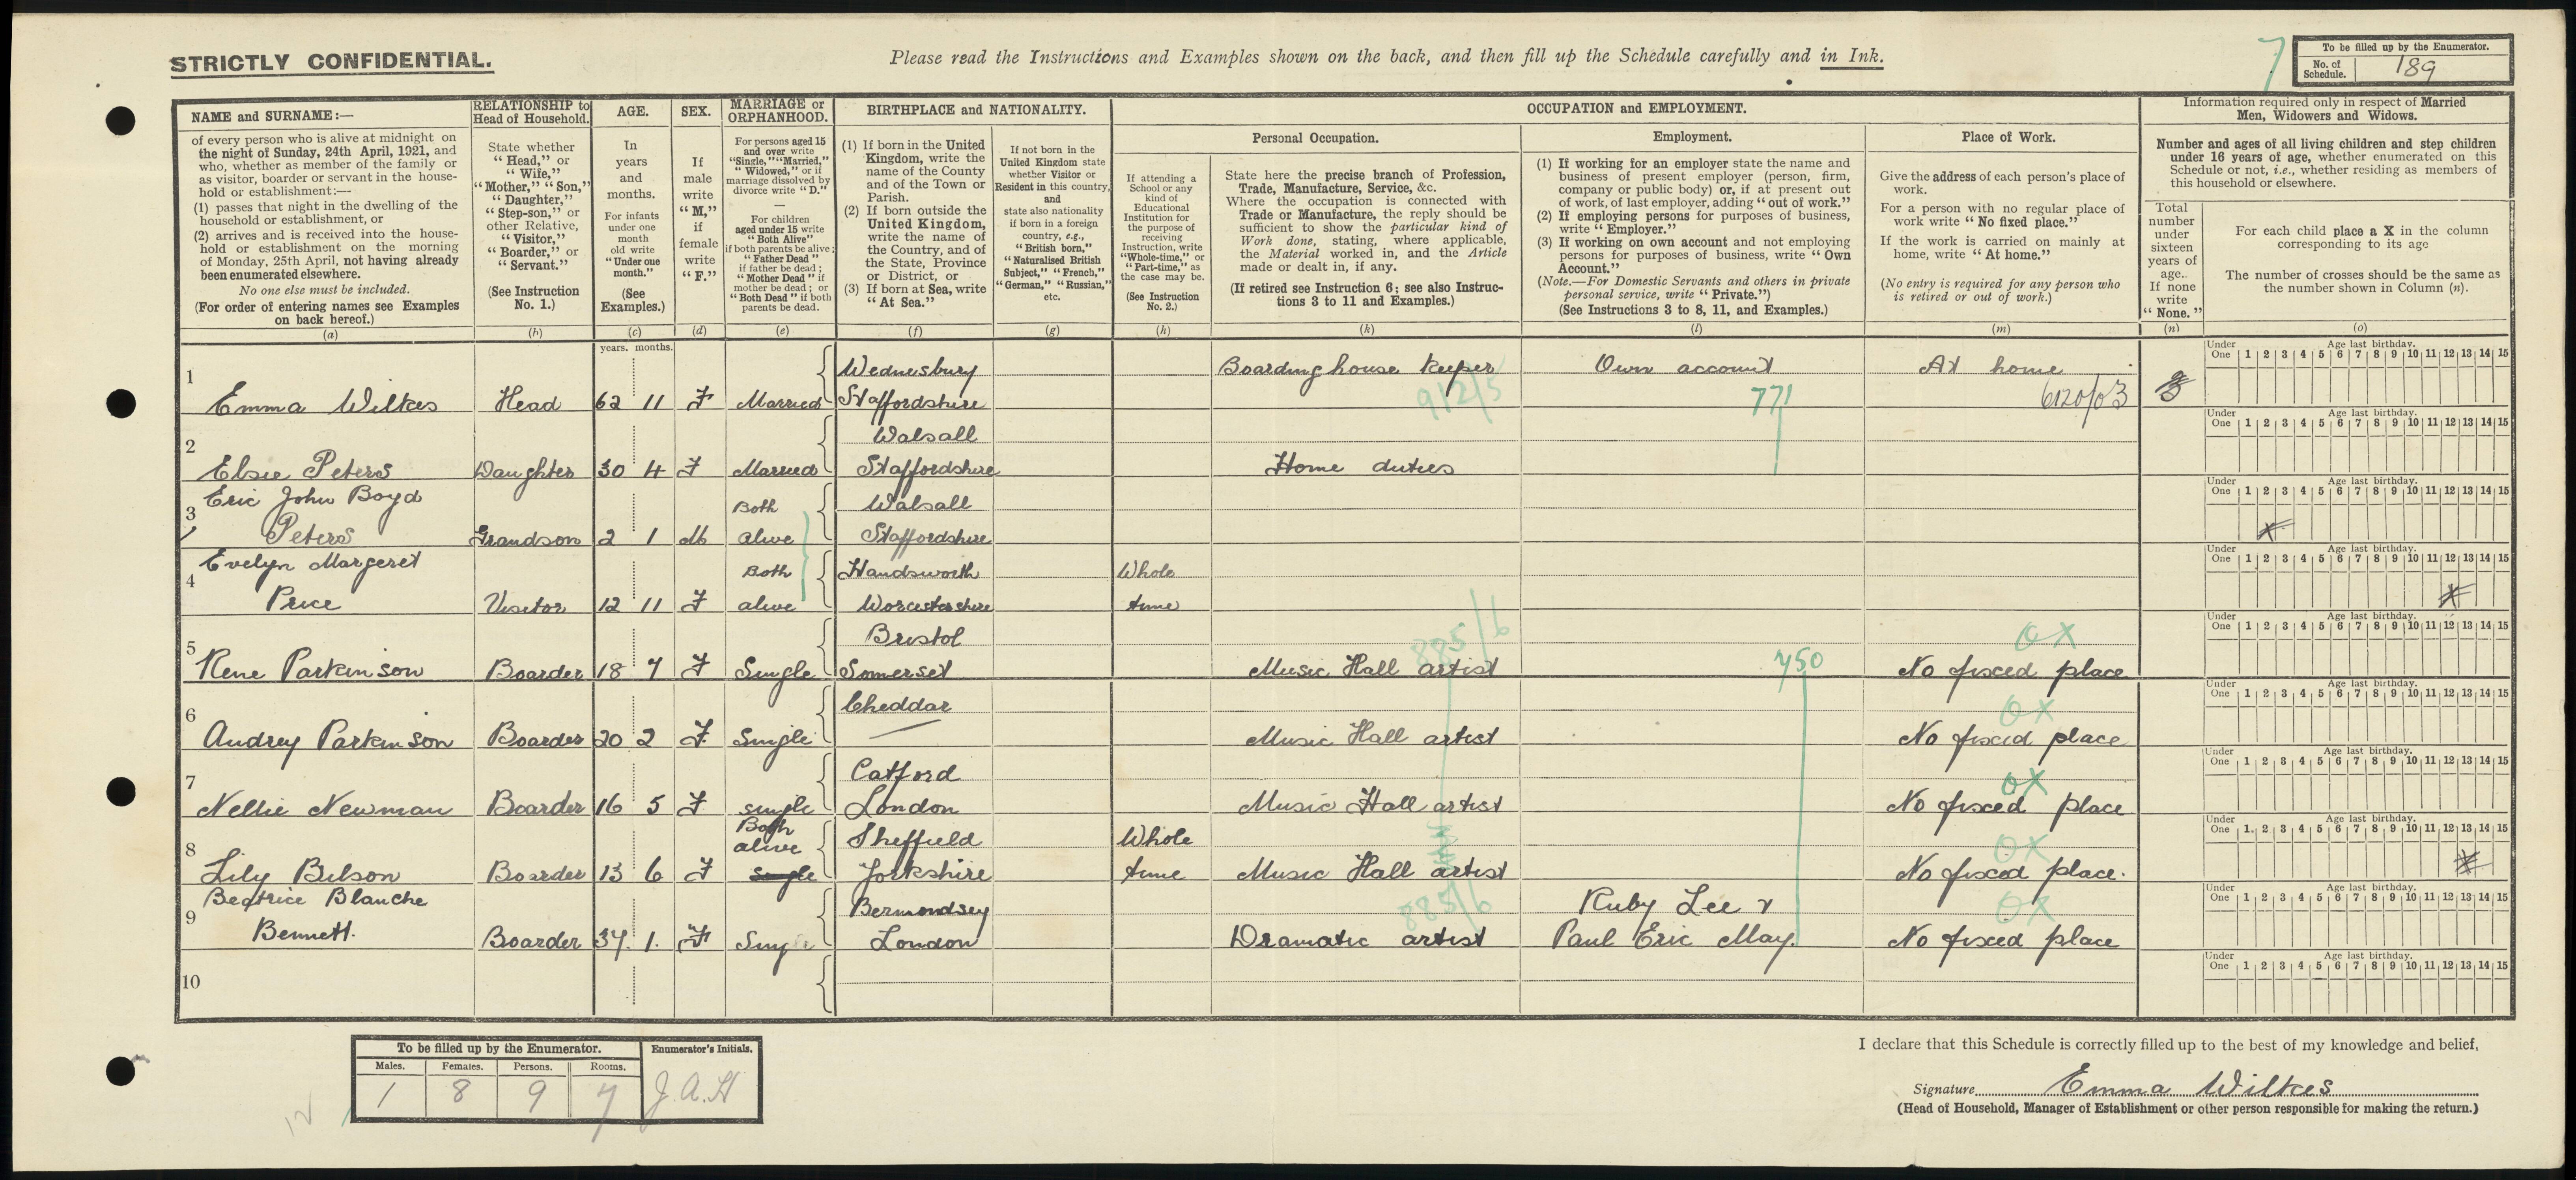 STRICTLY CONFIDENTIAL.
Please read the Instructions and Examples shown on the back, and then fill up the Schedule carefully and in Ink.
7
To be filled up by the Enumerator.
No. of Schedule. 189
NAME and SURNAME:—
of every person who is alive at midnight on
the night of Sunday, 24th April, 1921, and
who, whether as member of the family or
as visitor, boarder or servant in the house-
hold or establishment:—
(1) passes that night in the dwelling of the
household or establishment, or
(2) arrives and is received into the house-
hold or establishment on the morning
of Monday, 25th April, not having already
been enumerated elsewhere.
No one else must be included.
(For order of entering names see Examples
on back hereof.)
(a)
RELATIONSHIP to
Head of Household.
State whether
"Head," or
"Wife,"
"Mother," "Son,"
"Daughter,"
"Step-son," or
other Relative,
"Visitor,"
"Boarder," or
"Servant."
(See Instruction
No. 1.)
(b)
AGE.
In
years
and
months.
For infants
under one
month
old write
"Under one
month."
(See
Examples.)
(c)
SEX.
If
male
write
"M,"
if
female
write
"F."
(d)
MARRIAGE or
ORPHANHOOD.
For persons aged 15
and over write
"Single," "Married,"
"Widowed," or if
marriage dissolved by
divorce write "D."
—
For children
aged under 15 write
"Both Alive"
if both parents be alive;
"Father Dead"
if father be dead;
"Mother Dead" if
mother be dead; or
"Both Dead" if both
parents be dead.
(e)
BIRTHPLACE and NATIONALITY.
(1) If born in the United
Kingdom, write the
name of the County
and of the Town or
Parish.
(2) If born outside the
United Kingdom,
write the name of
the Country, and of
the State, Province
or District, or
(3) If born at Sea, write
"At Sea."
(f)
If not born in the
United Kingdom state
whether Visitor or
Resident in this country,
and
state also nationality
if born in a foreign
country, e.g.,
"British born,"
"Naturalised British
Subject," "French,"
"German," "Russian,"
etc.
(g)
OCCUPATION and EMPLOYMENT.
If attending a
School or any
kind of
Educational
Institution for
the purpose of
receiving
Instruction, write
"Whole-time," or
"Part-time," as
the case may be.
(See Instruction
No. 2.)
(h)
Personal Occupation.
State here the precise branch of Profession,
Trade, Manufacture, Service, &c.
Where the occupation is connected with
Trade or Manufacture, the reply should be
sufficient to show the particular kind of
Work done, stating, where applicable,
the Material worked in, and the Article
made or dealt in, if any.
(If retired see Instruction 6; see also Instruc-
tions 3 to 11 and Examples.)
(k)
Employment.
(1) If working for an employer state the name and
business of present employer (person, firm,
company or public body) or, if at present out
of work, of last employer, adding "out of work."
(2) If employing persons for purposes of business,
write "Employer."
(3) If working on own account and not employing
persons for purposes of business, write "Own
Account."
(Note.—For Domestic Servants and others in private
personal service, write "Private.")
(See Instructions 3 to 8, 11, and Examples.)
(l)
Place of Work.
Give the address of each person's place of
work.
For a person with no regular place of
work write "No fixed place."
If the work is carried on mainly at
home, write "At home."
(No entry is required for any person who
is retired or out of work.)
(m)
Information required only in respect of Married
Men, Widowers and Widows.
Number and ages of all living children and step children
under 16 years of age, whether enumerated on this
Schedule or not, i.e., whether residing as members of
this household or elsewhere.
Total
number
under
sixteen
years of
age..
If none
write
"None."
(n)
For each child place a X in the column
corresponding to its age
The number of crosses should be the same as
the number shown in Column (n).
(o)
years. months.
Under One Age last birthday. 1 2 3 4 5 6 7 8 9 10 11 12 13 14 15
1 Emma Wilkes Head 62 11 F Married Wednesbury Staffordshire Boarding house keeper 912/5 Own account 771 At home 6120/03 3
Under One Age last birthday. 1 2 3 4 5 6 7 8 9 10 11 12 13 14 15
2 Elsie Peters Daughter 30 4 F Married Walsall Staffordshire Home duties
Under One Age last birthday. 1 2 3 4 5 6 7 8 9 10 11 12 13 14 15
3 Eric John Boyd Peters Grandson 2 1 M Both alive Walsall Staffordshire X
Under One Age last birthday. 1 2 3 4 5 6 7 8 9 10 11 12 13 14 15
4 Evelyn Margeret Price Visitor 12 11 F Both alive Handsworth Worcestershire Whole time X
Under One Age last birthday. 1 2 3 4 5 6 7 8 9 10 11 12 13 14 15
5 Rene Parkinson Boarder 18 7 F Single Bristol Somerset Music Hall artist 885/6 750 No fixed place OX
Under One Age last birthday. 1 2 3 4 5 6 7 8 9 10 11 12 13 14 15
6 Audrey Parkinson Boarder 20 2 F. Single Cheddar — Music Hall artist No fixed place OX
Under One Age last birthday. 1 2 3 4 5 6 7 8 9 10 11 12 13 14 15
7 Nellie Newman Boarder 16 5 F single Catford London Music Hall artist No fixed place OX
Under One Age last birthday. 1 2 3 4 5 6 7 8 9 10 11 12 13 14 15
8 Lily Belson Boarder 13 6 F Both alive single Sheffield Yorkshire Whole time Music Hall artist No fixed place. OX X
Under One Age last birthday. 1 2 3 4 5 6 7 8 9 10 11 12 13 14 15
9 Beatrice Blanche Bennett. Boarder 37 1 F Single Bermondsey London Dramatic artist 885/6 Ruby Lee & Paul Eric May. No fixed place OX
Under One Age last birthday. 1 2 3 4 5 6 7 8 9 10 11 12 13 14 15
10
To be filled up by the Enumerator.
Males. Females. Persons. Rooms.
1 8 9 7
Enumerator's Initials.
J.A.H
12
I declare that this Schedule is correctly filled up to the best of my knowledge and belief,
Signature Emma Wilkes
(Head of Household, Manager of Establishment or other person responsible for making the return.)